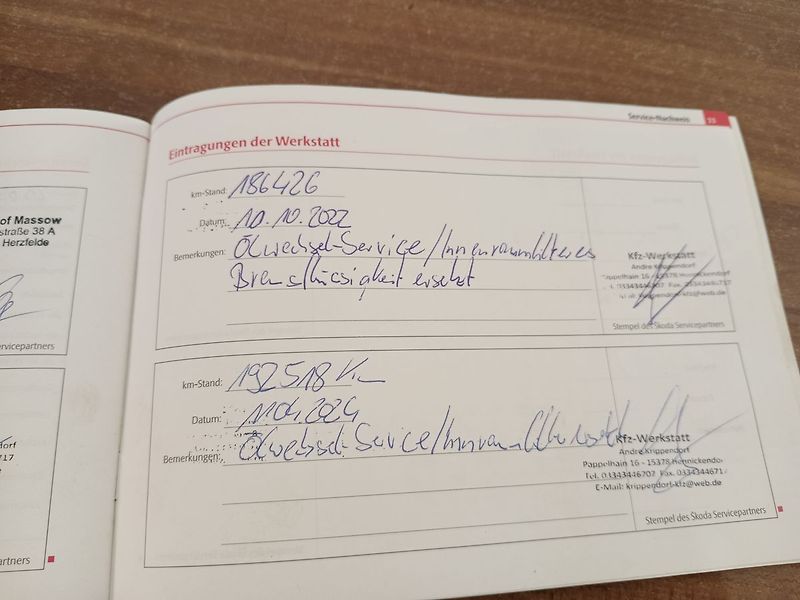 of Massow
straße 38 A
Herzfelde
rvicepartners
dorf
717
rtners
Service-Nachweis 35
Eintragungen der Werkstatt
km-Stand: 186426
Datum: 10.10.2022
Bemerkungen: Ölwechsel-Service/Innenraumfilter es
Bremsflüssigkeit ersetzt
Kfz-Werkstatt
Andre Krippendorf
Pappelhain 16 - 15378 Hennickendorf
Tel. 03343446707 Fax. 03343446717
E-Mail: krippendorf-kfz@web.de
Stempel des Skoda Servicepartners
km-Stand: 192518 Km
Datum: 11.04.2024
Bemerkungen: Ölwechsel-Service/Innenraumfilter ersetzt
Kfz-Werkstatt
Andre Krippendorf
Pappelhain 16 - 15378 Hennickendo
Tel. 03343446707 Fax. 0334344671
E-Mail: krippendorf-kfz@web.de
Stempel des Skoda Servicepartners